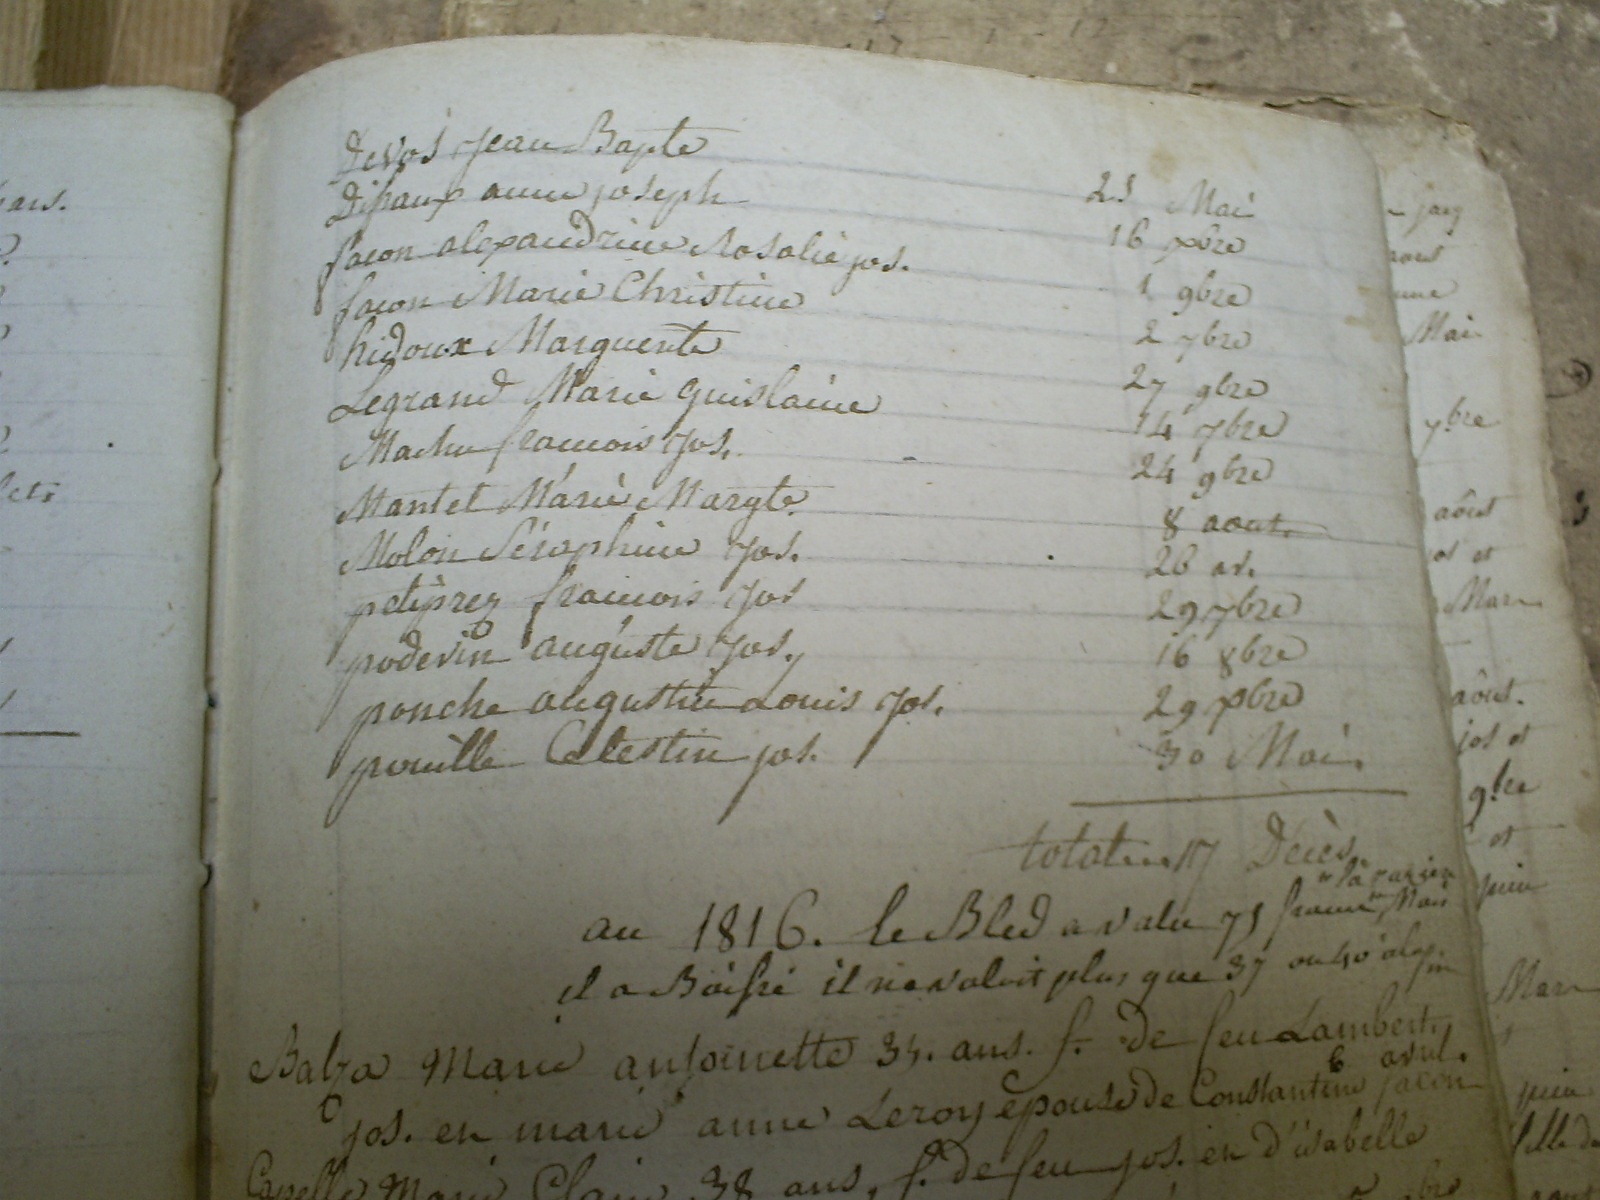 Devos Jean Bapte
Dipaux anne joseph 25 Mai
facon alexandrine Rosalie jos. 16 xbre
facon Marie Christine 1 9bre
hidoux Marguerite 2 7bre
Legrand Marie guislaine 27 9bre
Machu francois jos. 14 7bre
Mantel Marie Margte. 24 9bre
Molon Séraphine jos. 8 aout.
petiprez francois jos 26 av.
poderin auguste jos. 29 7bre
ponche augustin Louis jos. 16 8bre
pouille Celestin jos. 29 xbre
30 Mai.
total 17 Décès
an 1816. le Bled a valu 75 francs
il a Baissé il ne valoit plus que 37 ou 40
Balza Marie antoinette 34. ans. f. de feu Lambert
6 avril.
jos. en marie anne Leroy épouse de Constantin facon
Capelle Marie Claire 38 ans, f. de feu jos. en d'isabelle
ans.
Mai
7bre
aôut
jos et
aôut.
jos et
9bre
et
juin
juin
fille de